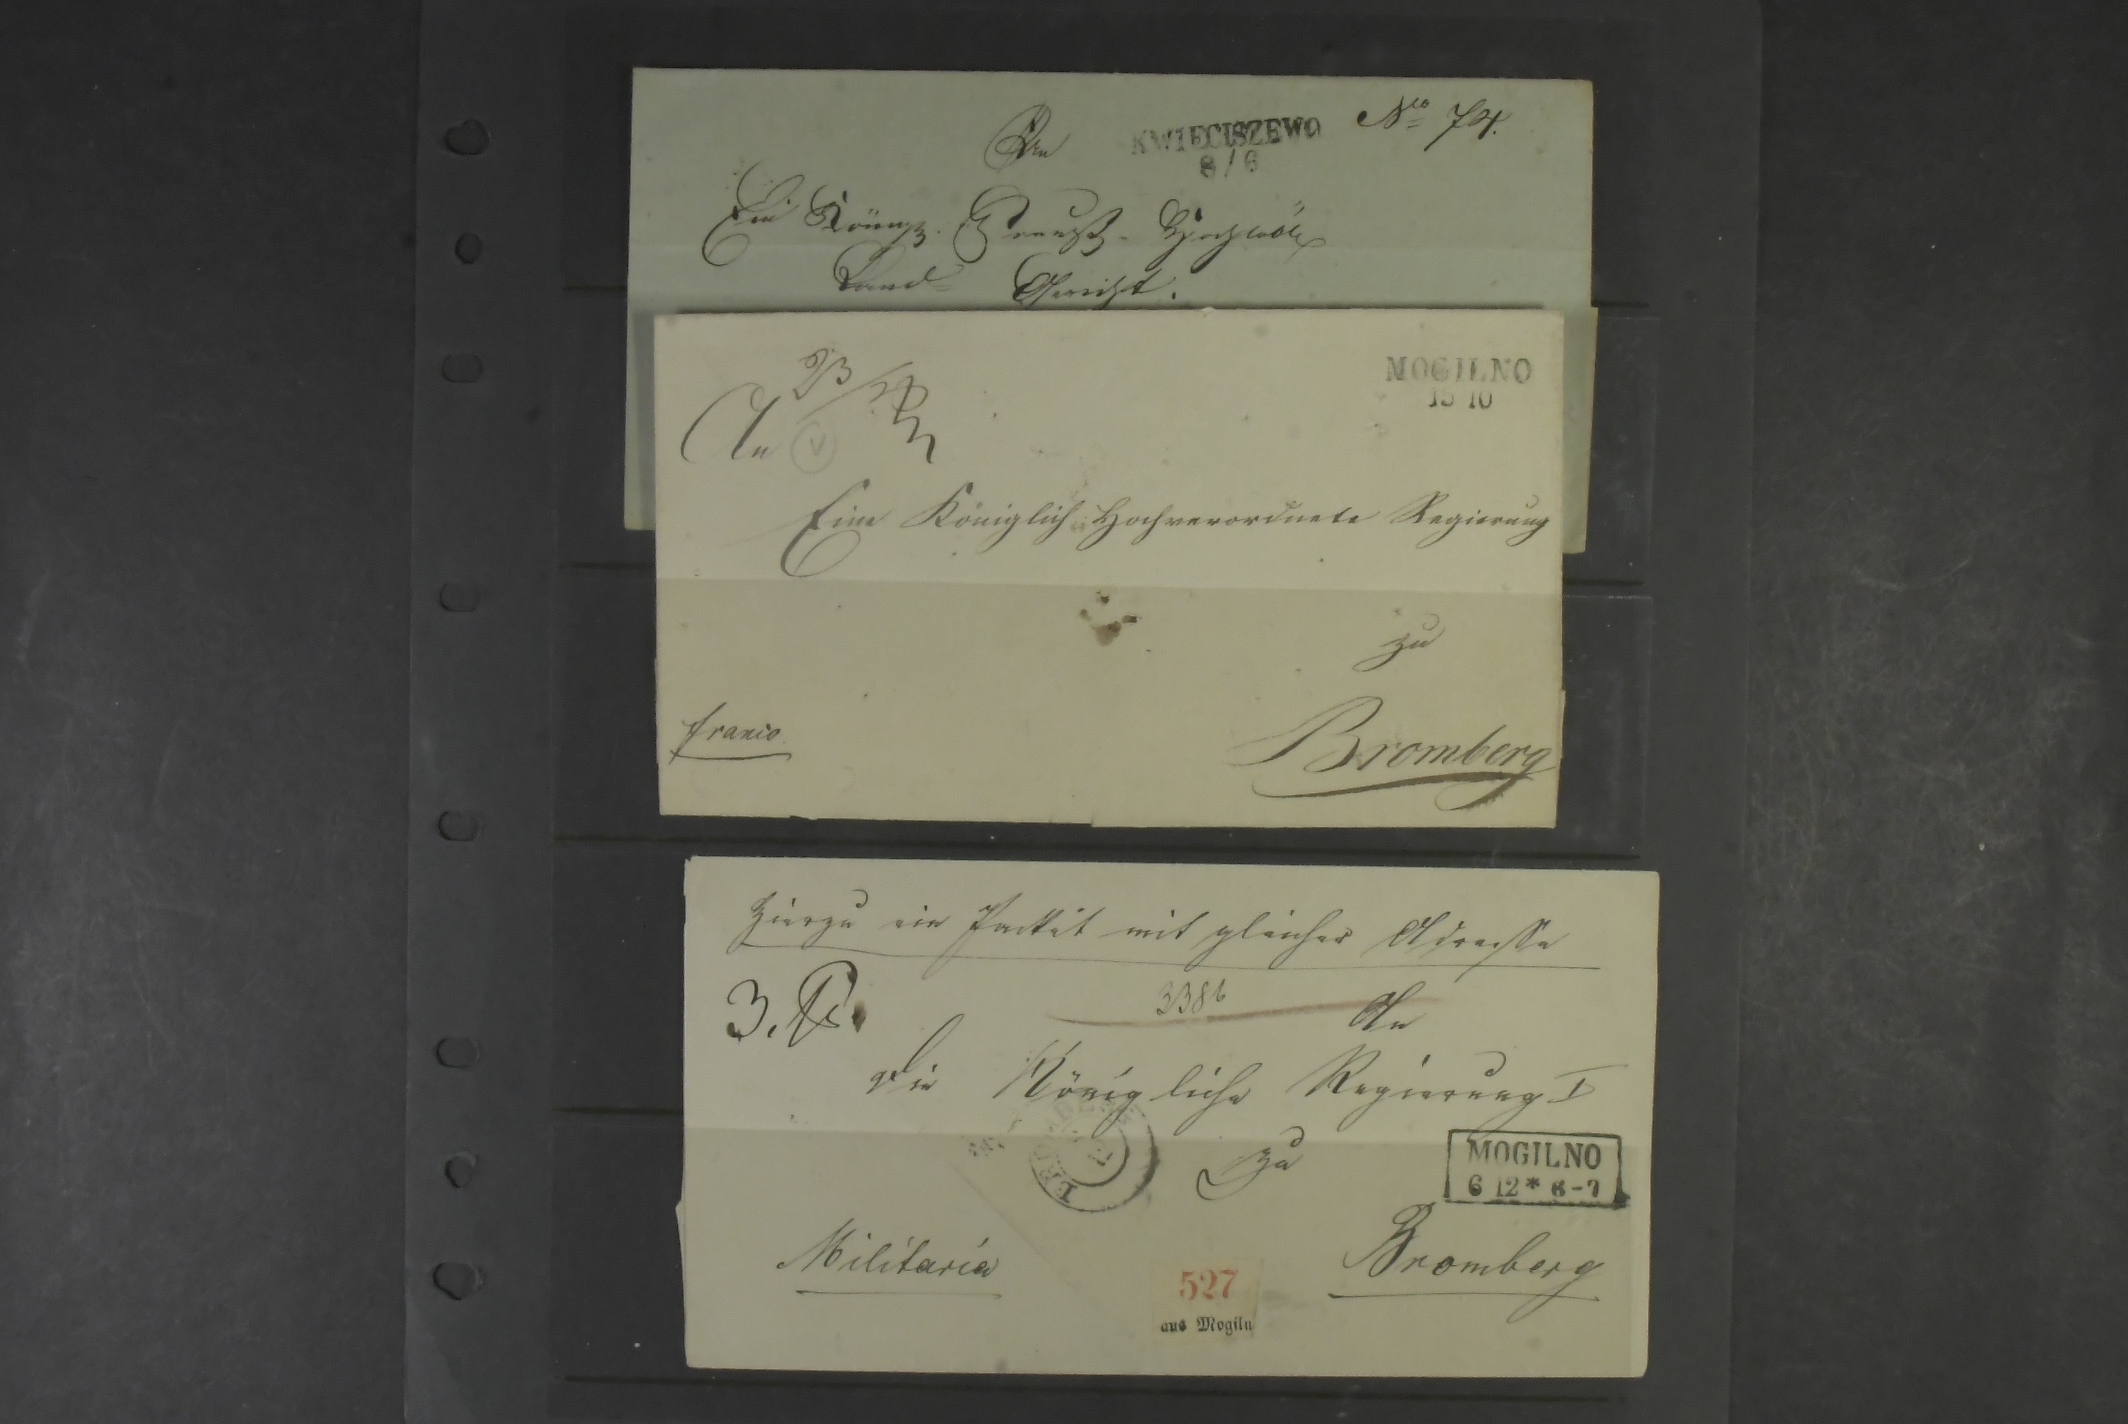 An
KWIECISZEWO
8/6
No 74.
Ein Königl. Preuß.
Land- Gericht.
MOGILNO
15 10
An
Eine Königlich Hochverordnete Regierung
zu
franco
Bromberg
Hierzu ein Packet mit gleicher Adresse
3386
An
die Königliche Regierung I
zu
MOGILNO
6 12 * 6-7
Militaria
Bromberg
527
aus Mogiln